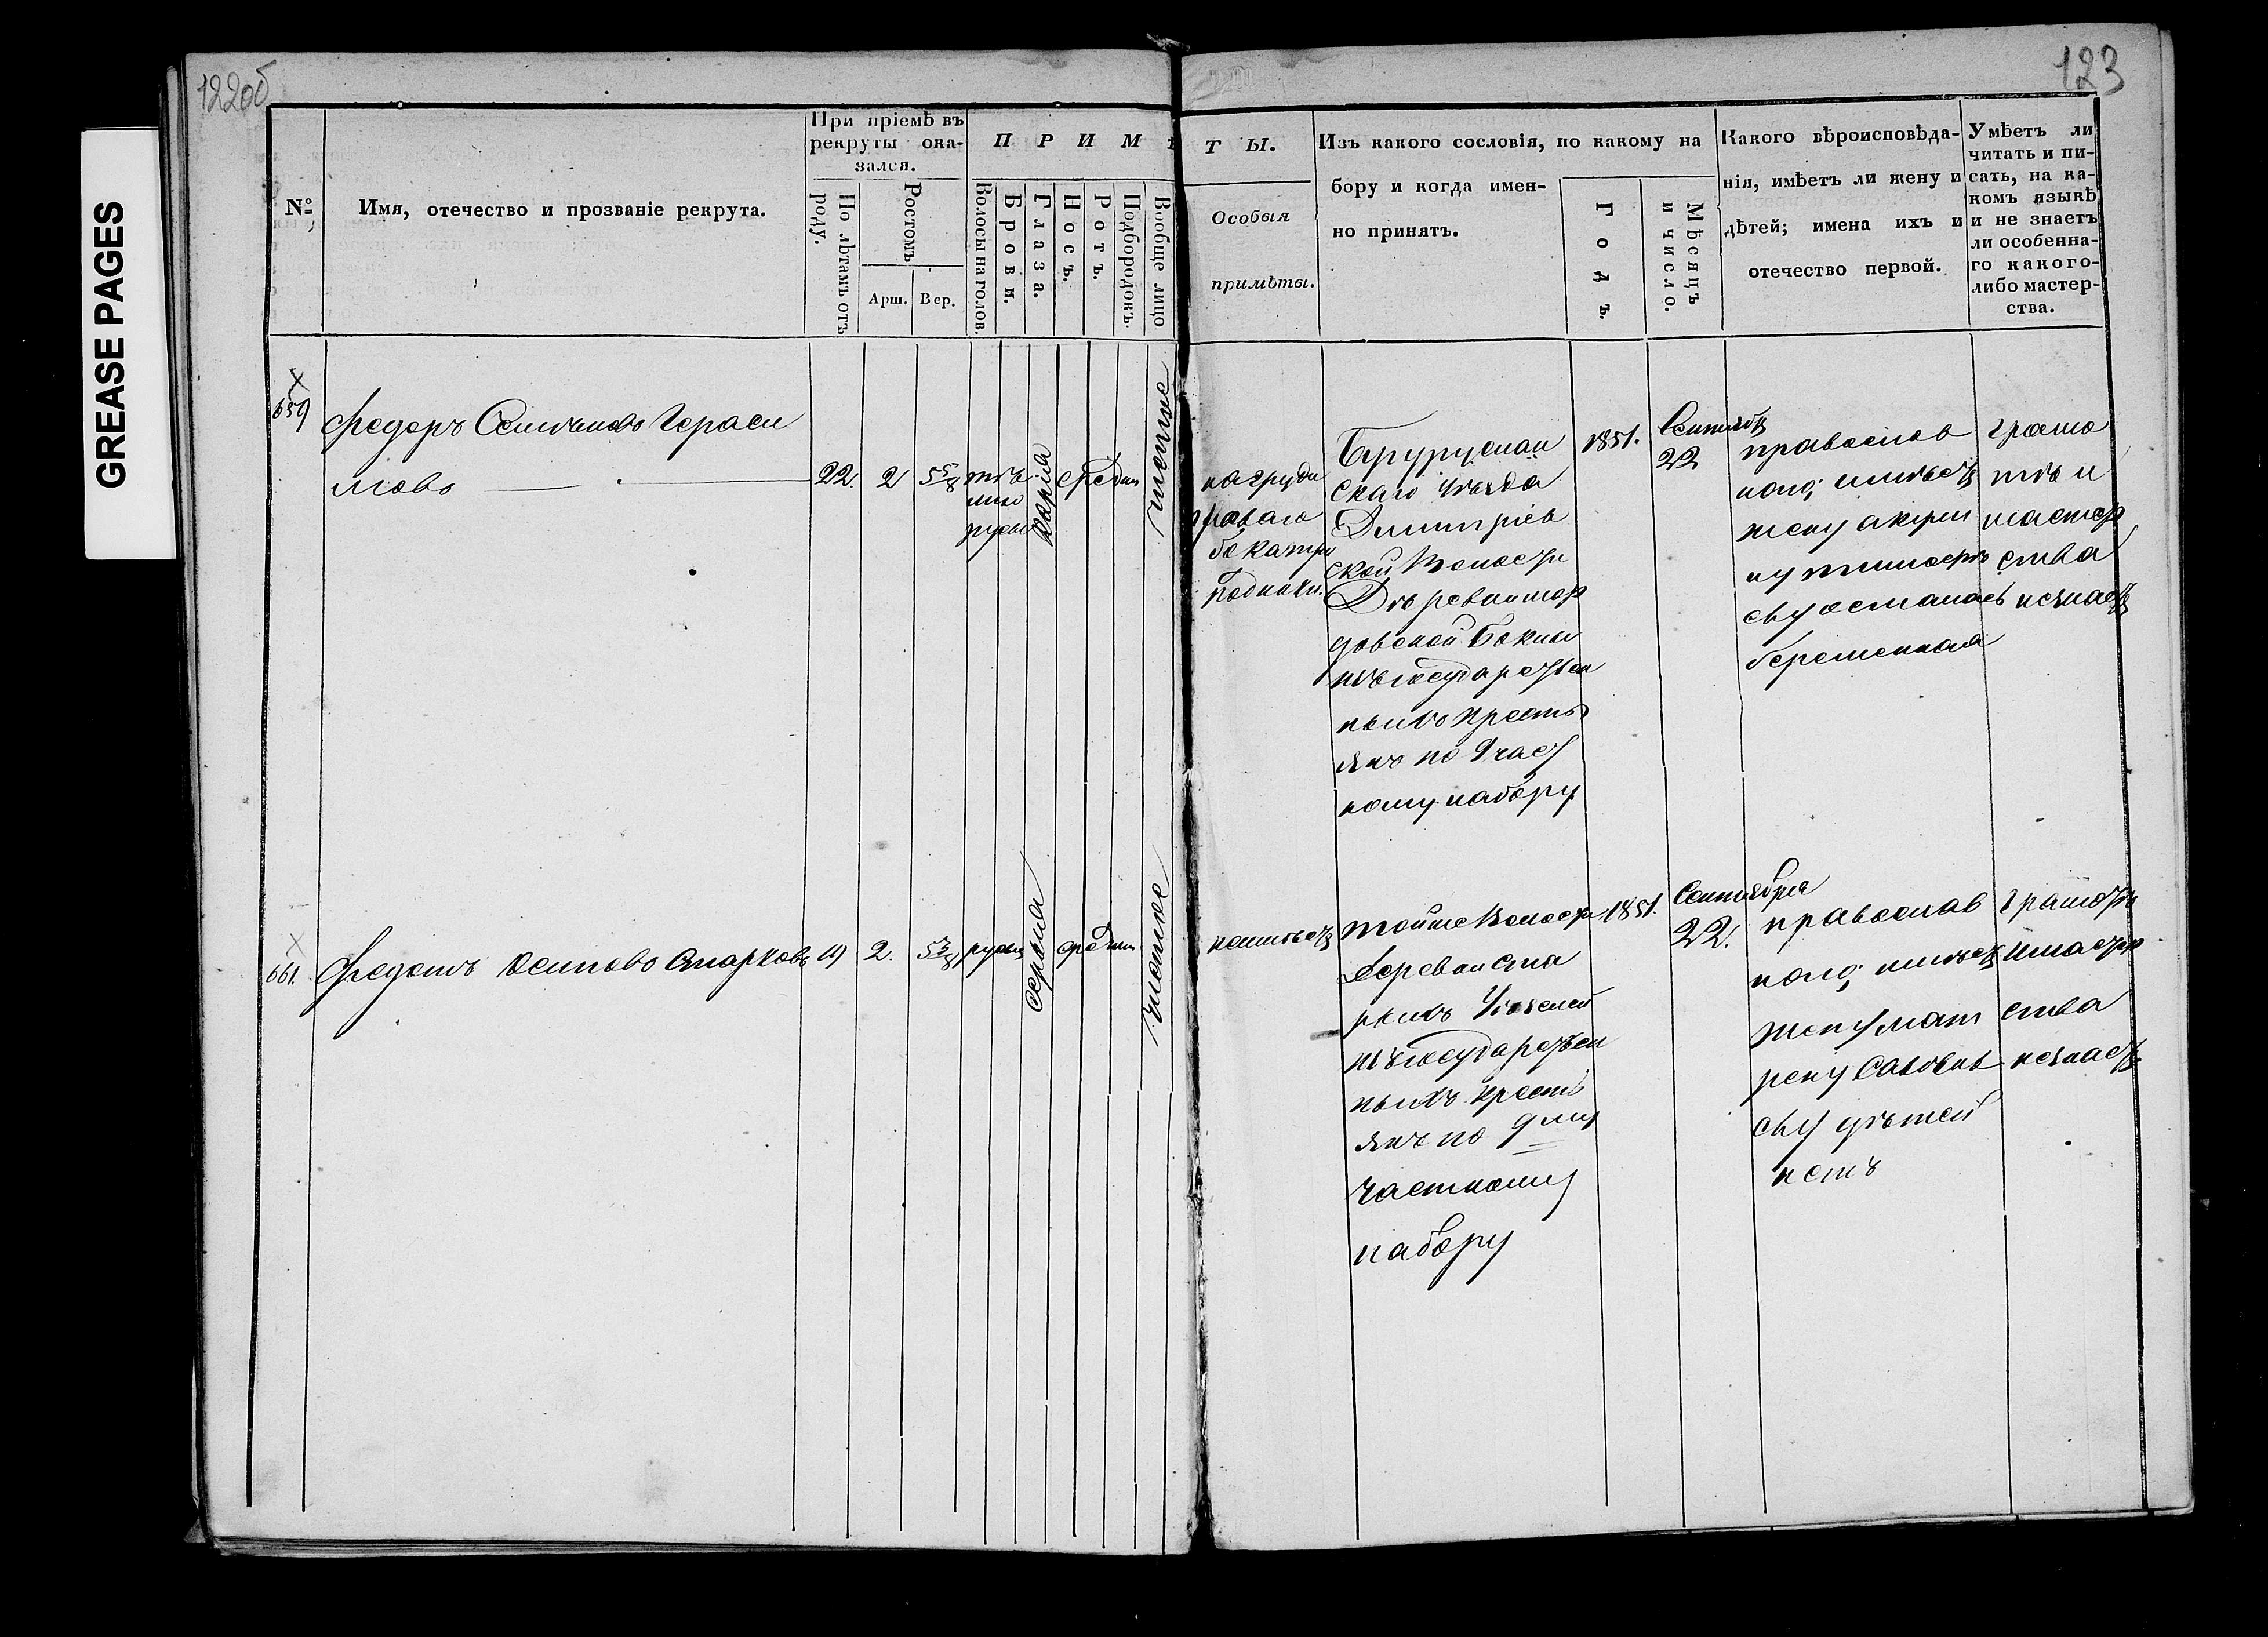 122об
123
GREASE PAGES
№
Имя, отечество и прозваніе рекрута.
При пріемѣ въ
рекруты ока-
зался.
По лѣтамъ отъ
роду.
Ростомъ
Арш. Вер.
ПРИМѢ
Волосы на голов.
Брови.
Глаза.
Носъ.
Ротъ.
Подбородокъ.
Вообще лицо
ТЫ.
Особыя
примѣты.
Изъ какого сословія, по какому на
бору и когда имен-
но принятъ.
Годъ.
Мѣсяцъ
и число.
Какого вѣроисповѣда-
нія, имѣетъ ли жену и
дѣтей; имена ихъ и
отечество первой.
Умѣетъ ли
читать и пи-
сать, на ка-
комъ языкѣ
и не знаетъ
ли особенна-
го какого-
либо мастер-
ства.
659
Федоръ Семеновъ Гераси
мовъ
22.
2
5 5/8
тѣ
мно
русы
карія
средн
чистое
на груди
праваго
бока
Бугурусман
скаго уѣзда
Дмитріев
ской Волости
Дѣревни
государствен
ныхъ кресть
янъ по 9 част
ному набору
1851.
Сентяб
22
православ
наго; имѣетъ
жену акули
ну
еву осталась
беременная
грамо
тѣ и
мастер
ства
незнаетъ
661.
Федотъ осиповъ старковъ
19
2.
5 3/8
русы
серыя
средн
чистое
неимѣетъ
тойже Волости
деревни ста
рыхъ Узелей
государствен
ныхъ кресть
янъ по 9 му
частному
набору
1851.
Сентября
22.
православ
наго; имѣетъ
жену мат
рену Савель
еву дѣтей
нетъ
грамоты
имастер
ства
незнаетъ